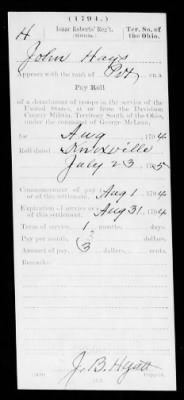 (1794.)
H Isaac Roberts' Reg't Ter. So. of
(Militia). the Ohio.
John Hays
Appears with the rank of Pvt on a
Pay Roll
of a detachment of troops in the service of the
United States, at or from the Davidson
County Militia, Territory South of the Ohio,
under the command of George McLean,
for Aug , 1794
Roll dated Knoxville
July 23 , 1795
Commencement of pay
or of this settlement, Aug 1 , 1794
Expiration of service or
of this settlement, Aug 31 , 1794
Term of service, 1 months, days.
Pay per month, 3 dollars.
Amount of pay, 3 dollars, cents.
Remarks:
J. B. Hyatt
Copyist.